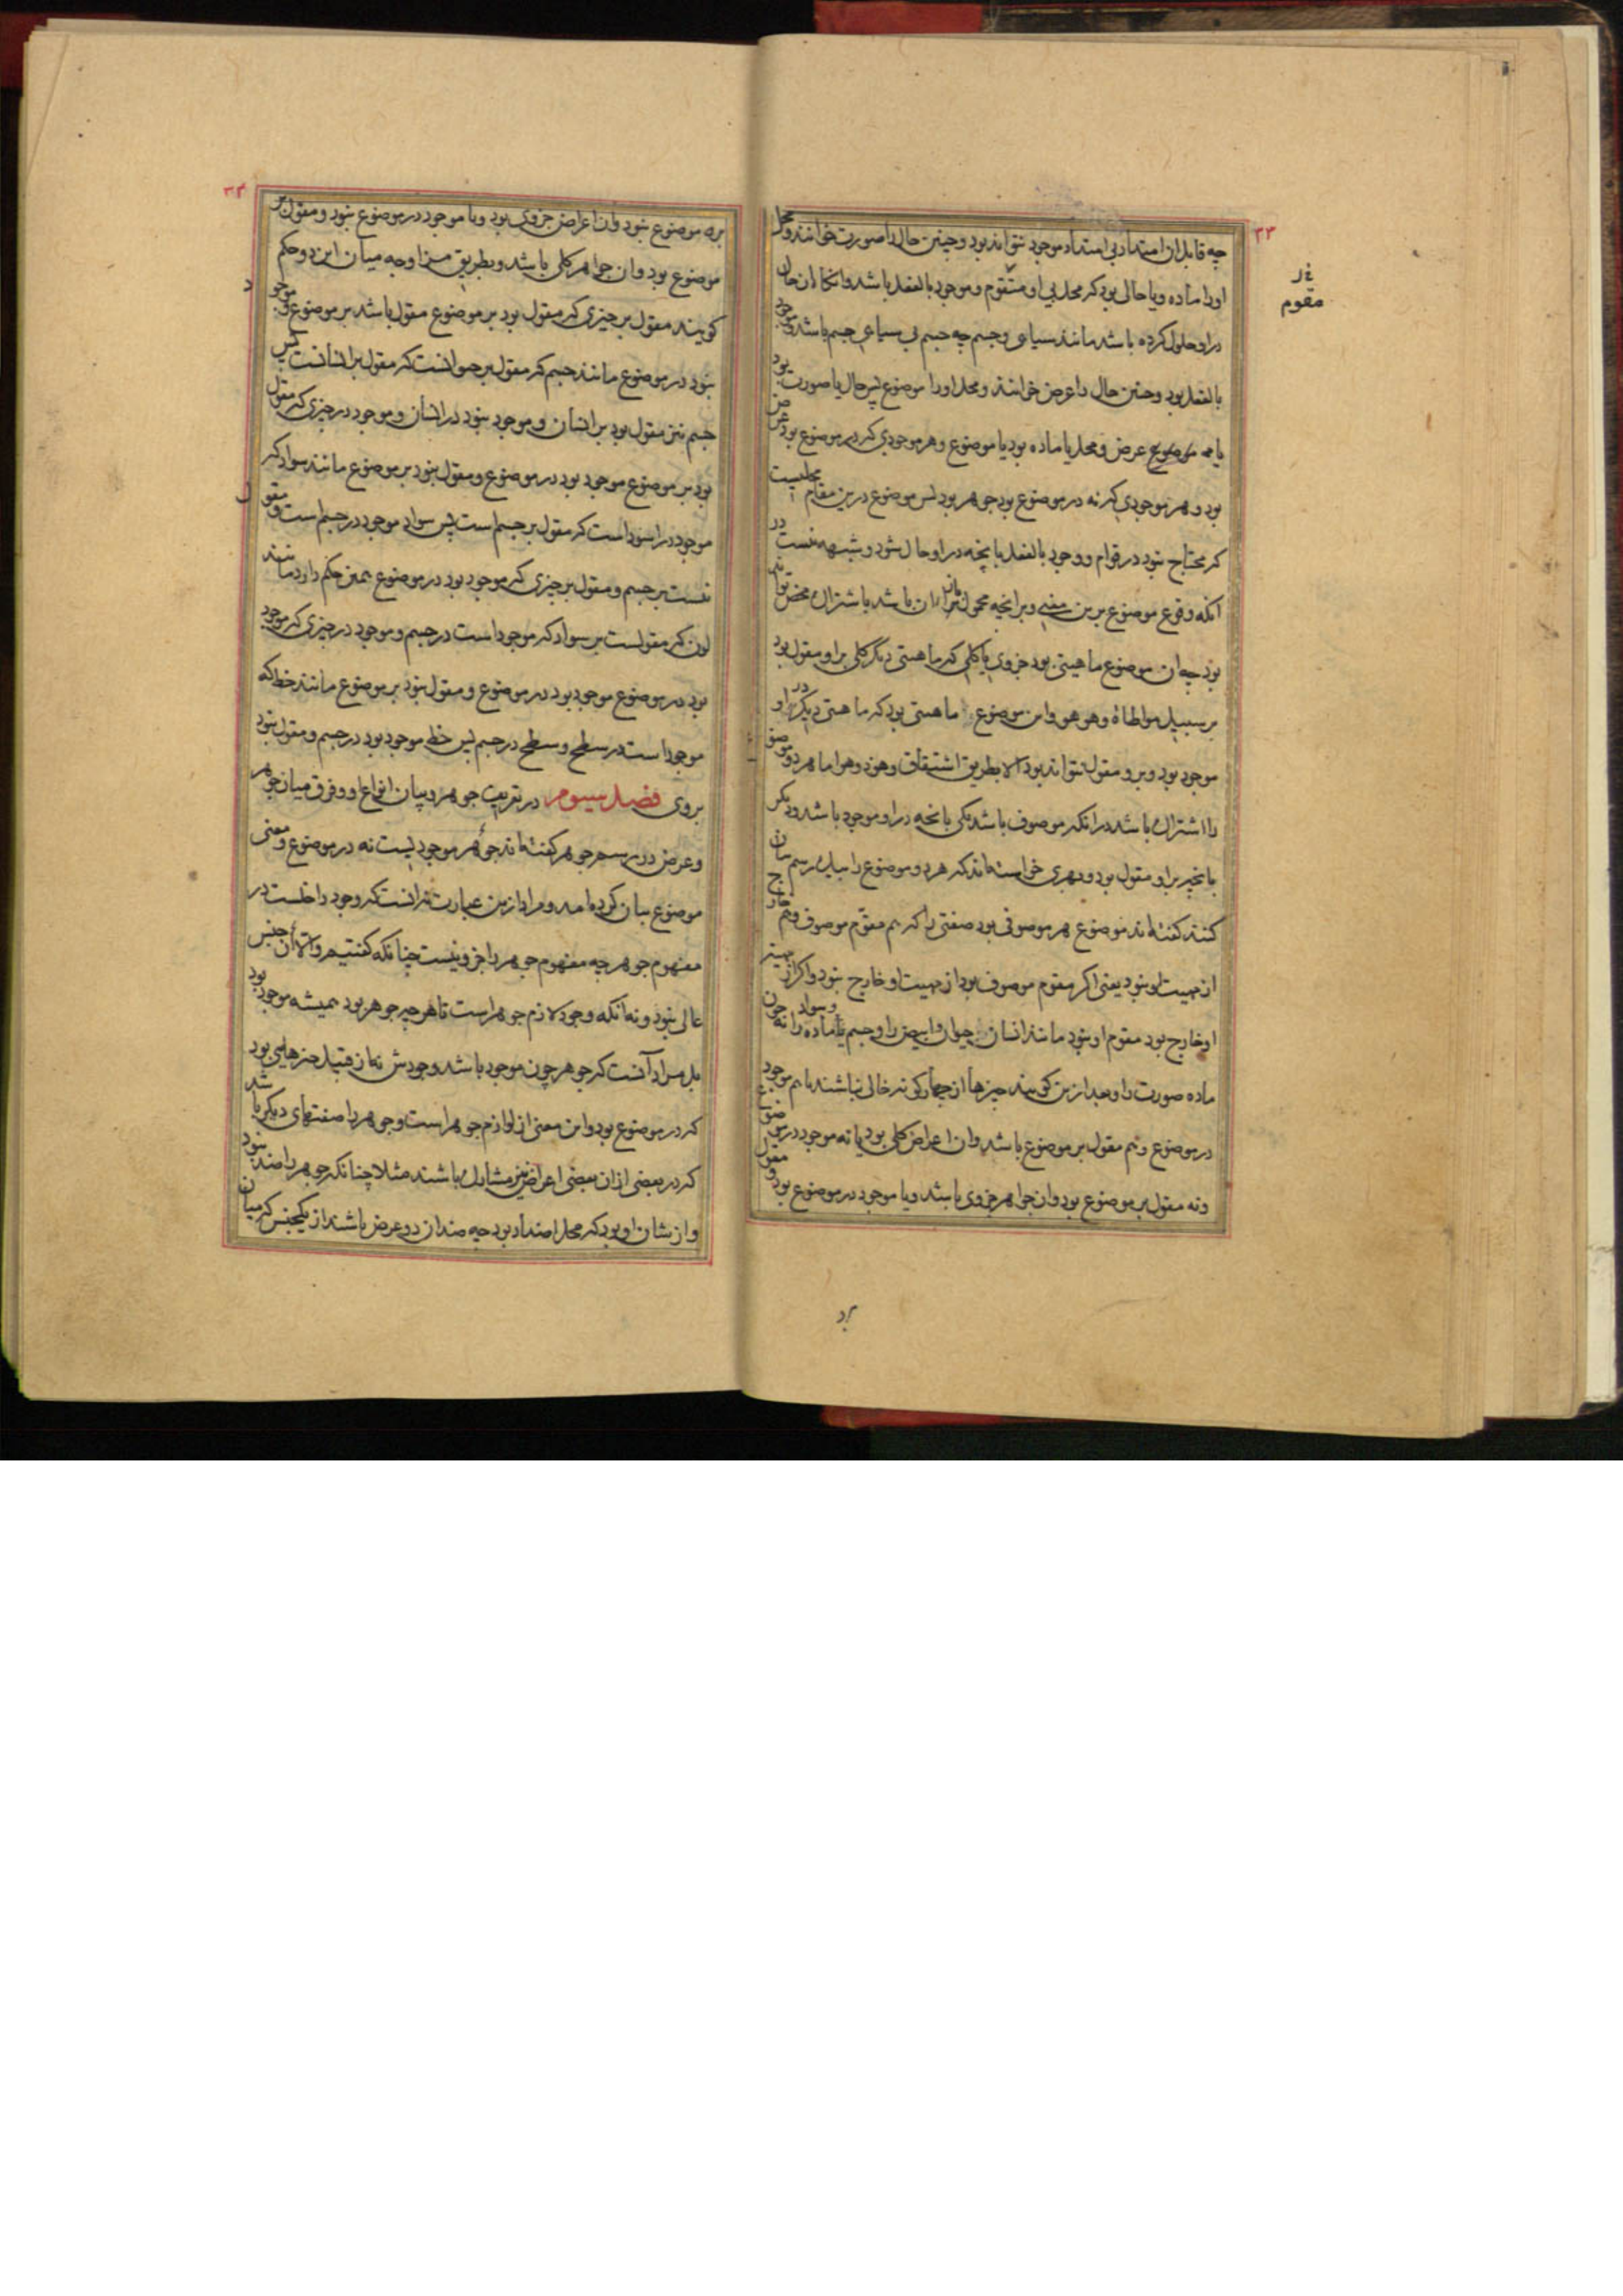 ۳۳
چه قابل ان امتداد بی امتداد موجود نتواند بود و چنین حال را صورت خوانند و محل
اورا ماده و یا حالی بود که محل بی او متقوم و موجود بالفعل باشد وانکاه ان حال
در او حلول کرده باشد مانند سیاهی و جسم چه جسم بی سیاهی جسم باشد و موجود
بالفعل بود و چنین حال را عرض خوانند و محل اورا موضوع پس حال یا صورت بود
یا عرض و محل یا ماده بود یا موضوع و هر موجودی که در موضوع بود عرض
بود و هر موجودی که نه در موضوع بود جوهر بود پس موضوع درین مقام محلیست
که محتاج نبود در قوام و وجود بالفعل بانچه در او حال شود و شبهه نیست در
انکه وقوع موضوع برین معنی و برانچه محمول بران باشد باشتراک محض تواند
بود چه ان موضوع ماهیتی بود جزوی یا کلی که ماهیتی دیگر کلی بر او مقول بود
بر سبیل مواطاة وهو هو و این موضوع ماهیتی بود که ماهیتی دیگر در او
موجود بود و برو مقول نتواند بود الا بطریق اشتقاق وهو ذو هو اما هر دو موضوع
را اشتراک باشد در انکه موصوف باشد یکی بانچه در او موجود باشد و دیگر
بانچه بر او مقول بود و بهری خواسته‌اند که هر دو موضوع را بیک رسم بیان
کنند گفته‌اند موضوع هر موصوفی بود صفتی را که هم مقوم موصوف و هم خارج
از مهیت او نبود یعنی اگر مقوم موصوف بود از مهیت او خارج نبود و اگر از مهیت
او خارج بود مقوم او نبود مانند انسان حیوان و ابیض را و جسم و سواد را نه چون
ماده صورت را و بعد ازین گویند چیزها از چهار گونه خالی نباشند یا هم موجود
در موضوع و هم مقول بر موضوع باشد و ان اعراض کلی بود یا نه موجود در موضوع
و نه مقول بر موضوع بود و ان جواهر جزوی باشد و یا موجود در موضوع بود و مقول
مقوم
بر
۳۴
بر موضوع نبود و ان اعراض جزوی بود و یا موجود در موضوع نبود و مقول بر
موضوع بود و ان جواهر کلی باشد و بطریق مزاوجه میان این دو حکم
گویند مقول بر چیزی که مقول بود بر موضوع مقول باشد بر موضوع و موجود
نبود در موضوع مانند جسم که مقول بر حیوانست که مقول بر انسانست پس
جسم نیز مقول بود بر انسان و موجود نبود در انسان و موجود در چیزی که مقول
بود بر موضوع موجود بود در موضوع و مقول نبود بر موضوع مانند سواد که
موجود در اسود است که مقول بر جسم است پس سواد موجود در جسم است و مقول
نیست بر جسم و مقول بر چیزی که موجود بود در موضوع همین حکم دارد مانند
لون که مقولست بر سواد که موجود است در جسم و موجود در چیزی که موجود
بود در موضوع موجود بود در موضوع و مقول نبود بر موضوع مانند خط که
موجود است در سطح و سطح در جسم پس خط موجود بود در جسم و مقول نبود
بروی فصل سیوم در تعریف جوهر و بیان انواع او و فرق میان جوهر
و عرض در رسم جوهر گفته‌اند جوهر موجودیست نه در موضوع و معنی
موضوع بیان کرده امد و مراد ازین عبارت نه انست که وجود داخلست در
مفهوم جوهر چه مفهوم جوهر را جزو نیست چنانکه گفتیم والا ان جنس
عالی نبود و نه انکه وجود لازم جوهر است تا هر چه جوهر بود همیشه موجود بود
بل مراد آنست که جوهر چون موجود باشد وجودش نه از قبیل چیزهایی بود
که در موضوع بود و این معنی از لوازم جوهر است و جوهر را صفتهای دیگر باشد
که در بعضی از ان بعضی اعراض نیز مشارک باشند مثلا چنانکه جوهر را ضد نبود
و از شان او بود که محل اضداد بود چه ضدان دو عرض باشند از یکجنس که میان